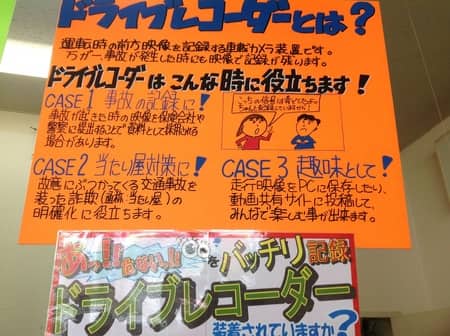 ドライブレコーダーとは?
運転時の前方映像を記録する車載カメラ装置です。
万が一、事故が発生した時にも映像で記録が残ります。
ドライブレコーダはこんな時に役立ちます!
CASE1 事故の記録に!
事故が起きた時の映像を保険会社や
警察に提出することで資料として採用される
場合があります。
CASE2 当たり屋対策に!
故意にぶつかってくる交通事故を
装った詐欺(通称 当たり屋)の
明確化に役立ちます。
CASE3 趣味として!
走行映像をPCに保存したり、
動画共有サイトに投稿して、
みんなで楽しむ事が出来ます。
あっ!!危ない!!
をバッチリ記録
ドライブレコーダー
装着されていますか?